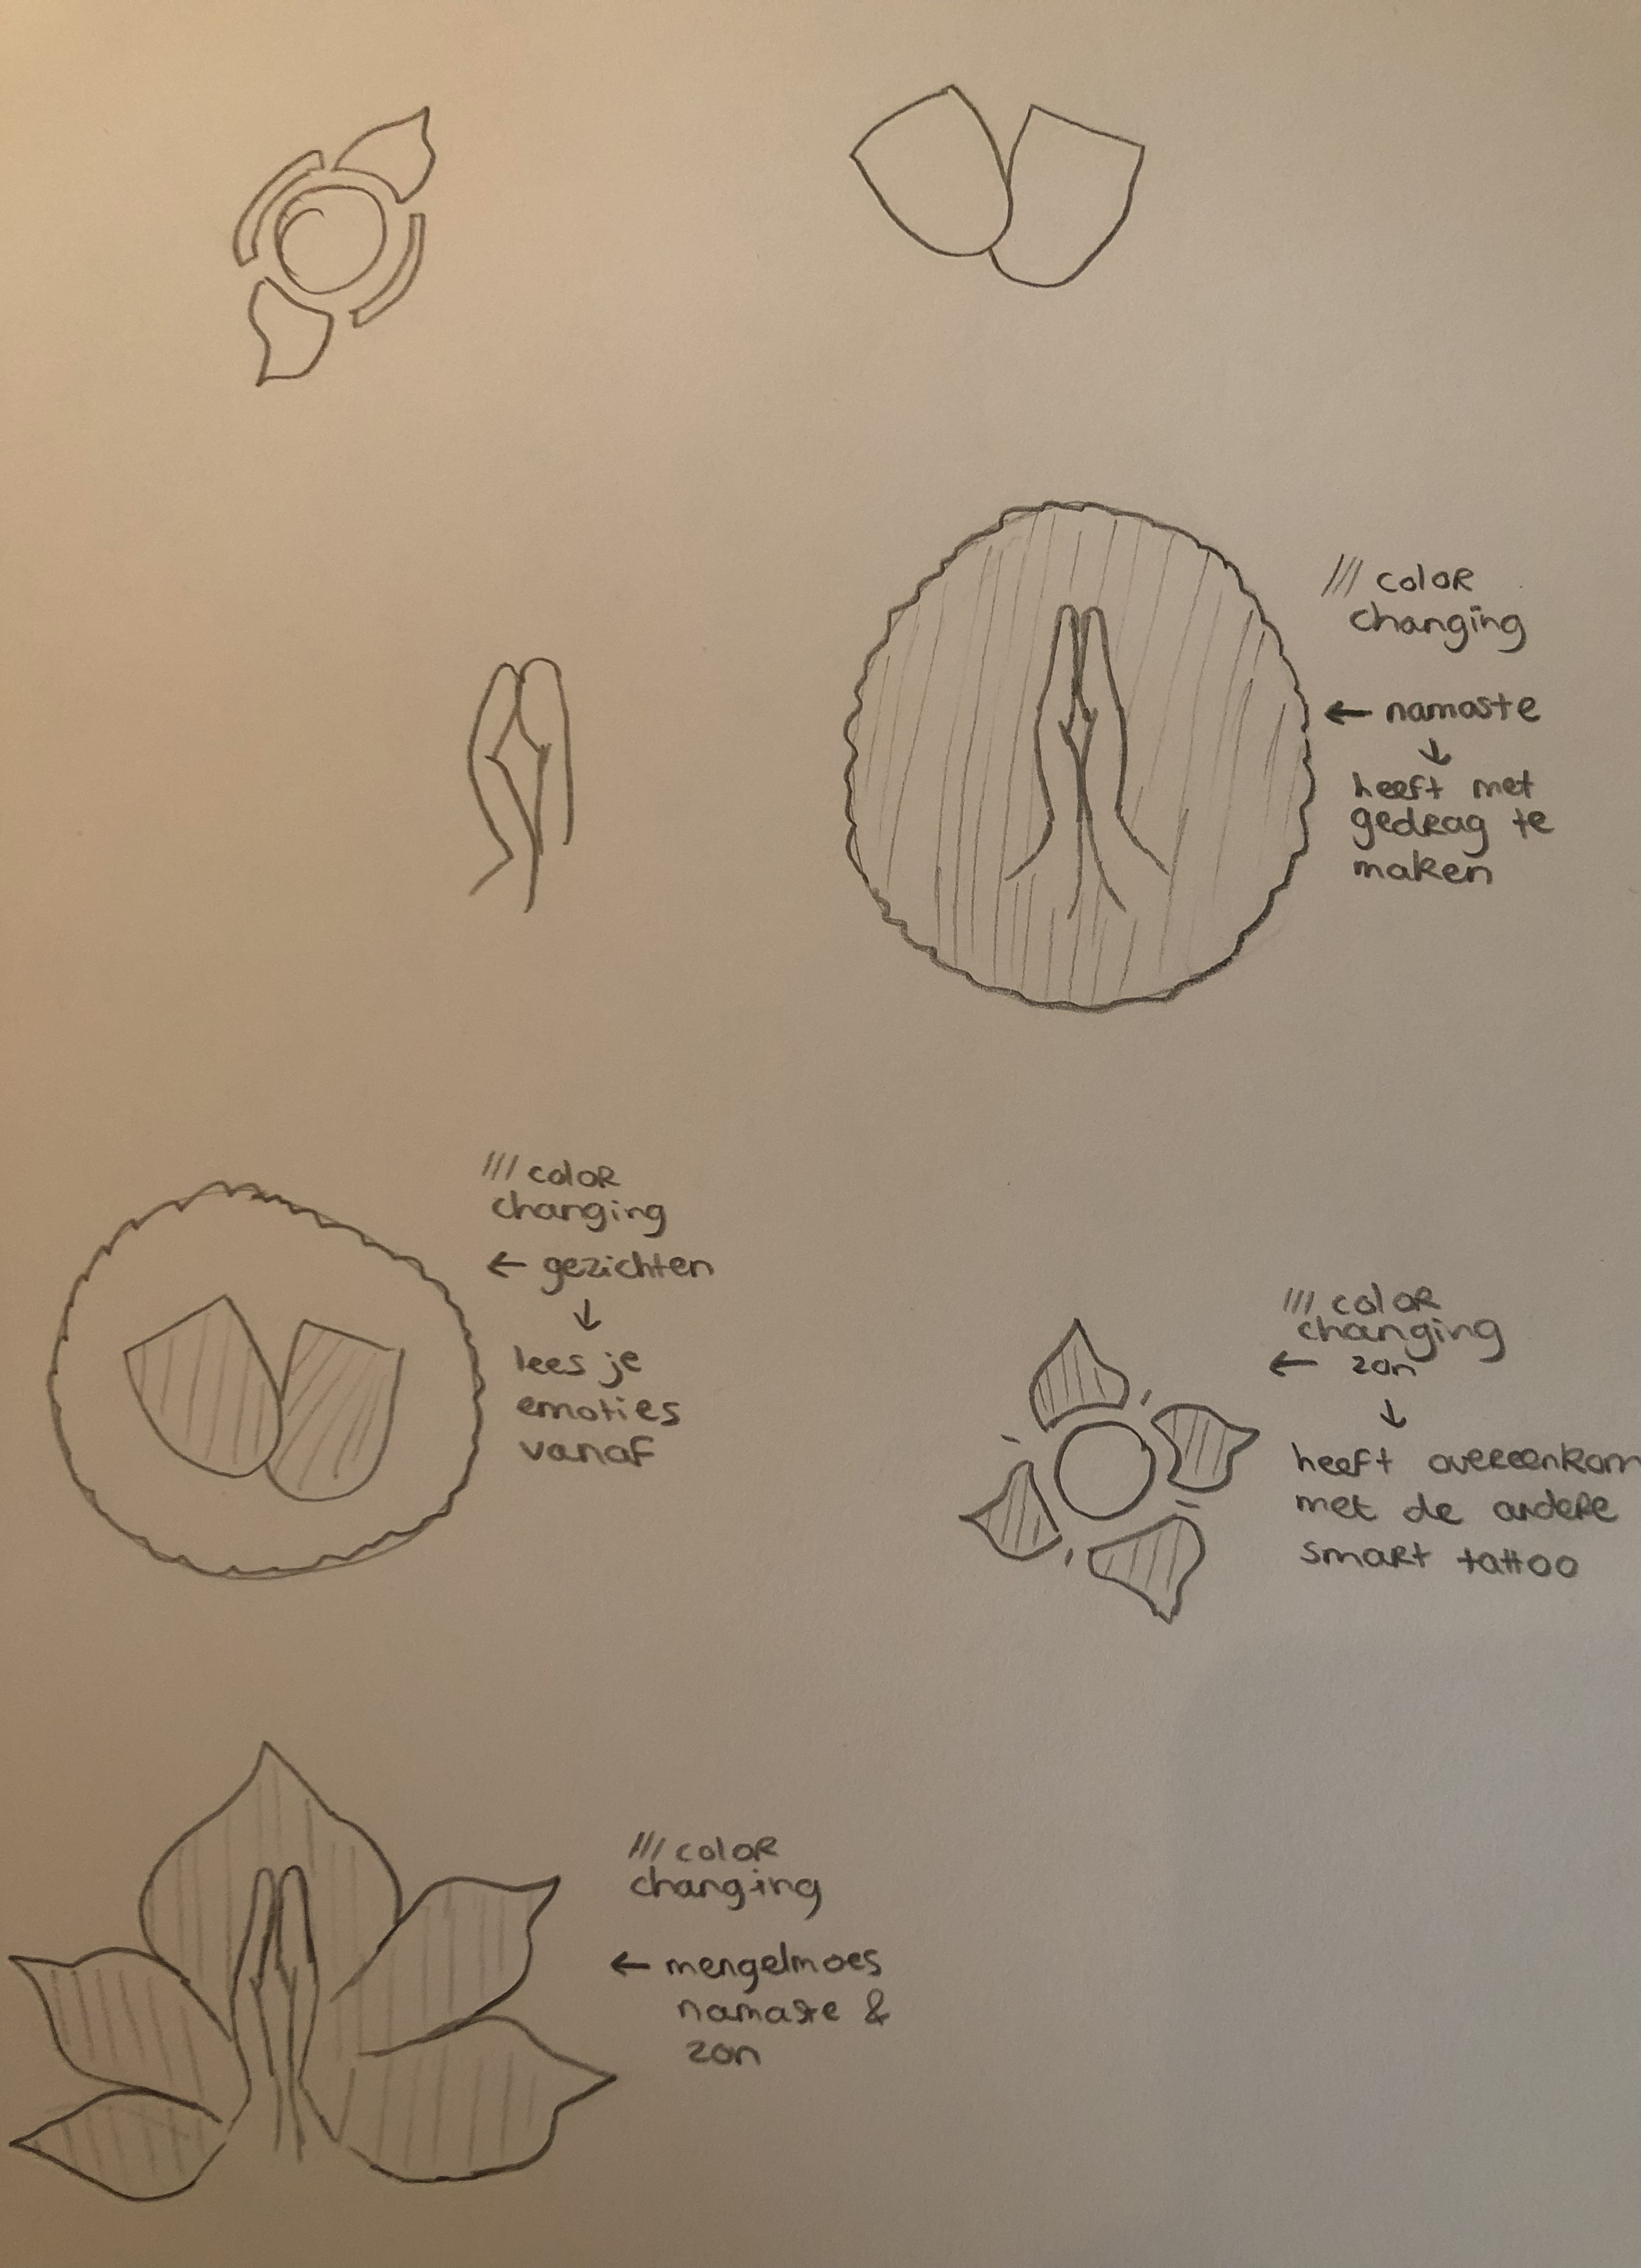 /// color
changing
← namaste
↓
heeft met
gedrag te
maken
/// color
changing
← gezichten
↓
lees je
emoties
vanaf
/// color
changing
← zon
↓
heeft overeenkom
met de andere
smart tattoo
/// color
changing
← mengelmoes
namaste &
zon